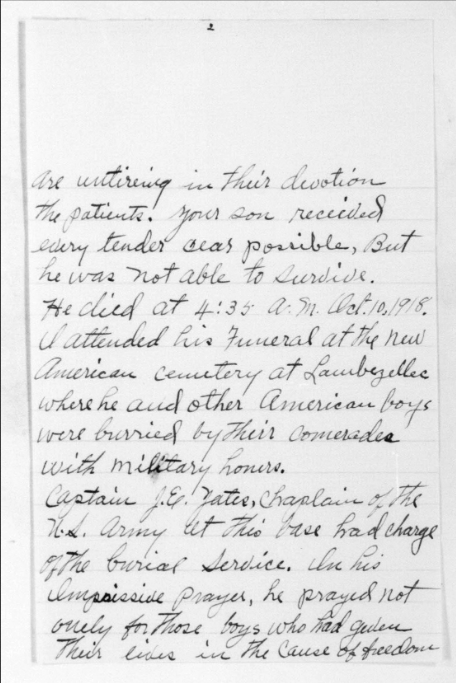 2
are untireing in their devotion
the patients. Your son received
every tender cear possible, But
he was not able to survive.
He died at 4:35 A.M. Oct. 10, 1918.
I attended his Funeral at the new
American cemetery at Lambezellec
where he and other American boys
were burried by their comerades
with military honers.
Captain J.E. Yates, Chaplain of the
U.S. Army at this base had charge
of the burial service. In his
Impressive Prayer, he prayed not
onely for those boys who had given
their lives in the cause of freedom